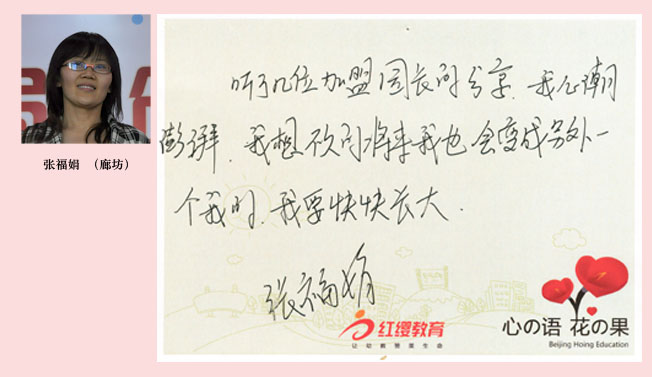 张福娟 （廊坊）
听了几位加盟园长的分享，我心潮
澎湃，我想不久的将来我也会变成另外一
个我的，我要快快长大．
张福娟
红缨教育
让幼教照亮生命
心の语 花の果
Beijing Hoing Education